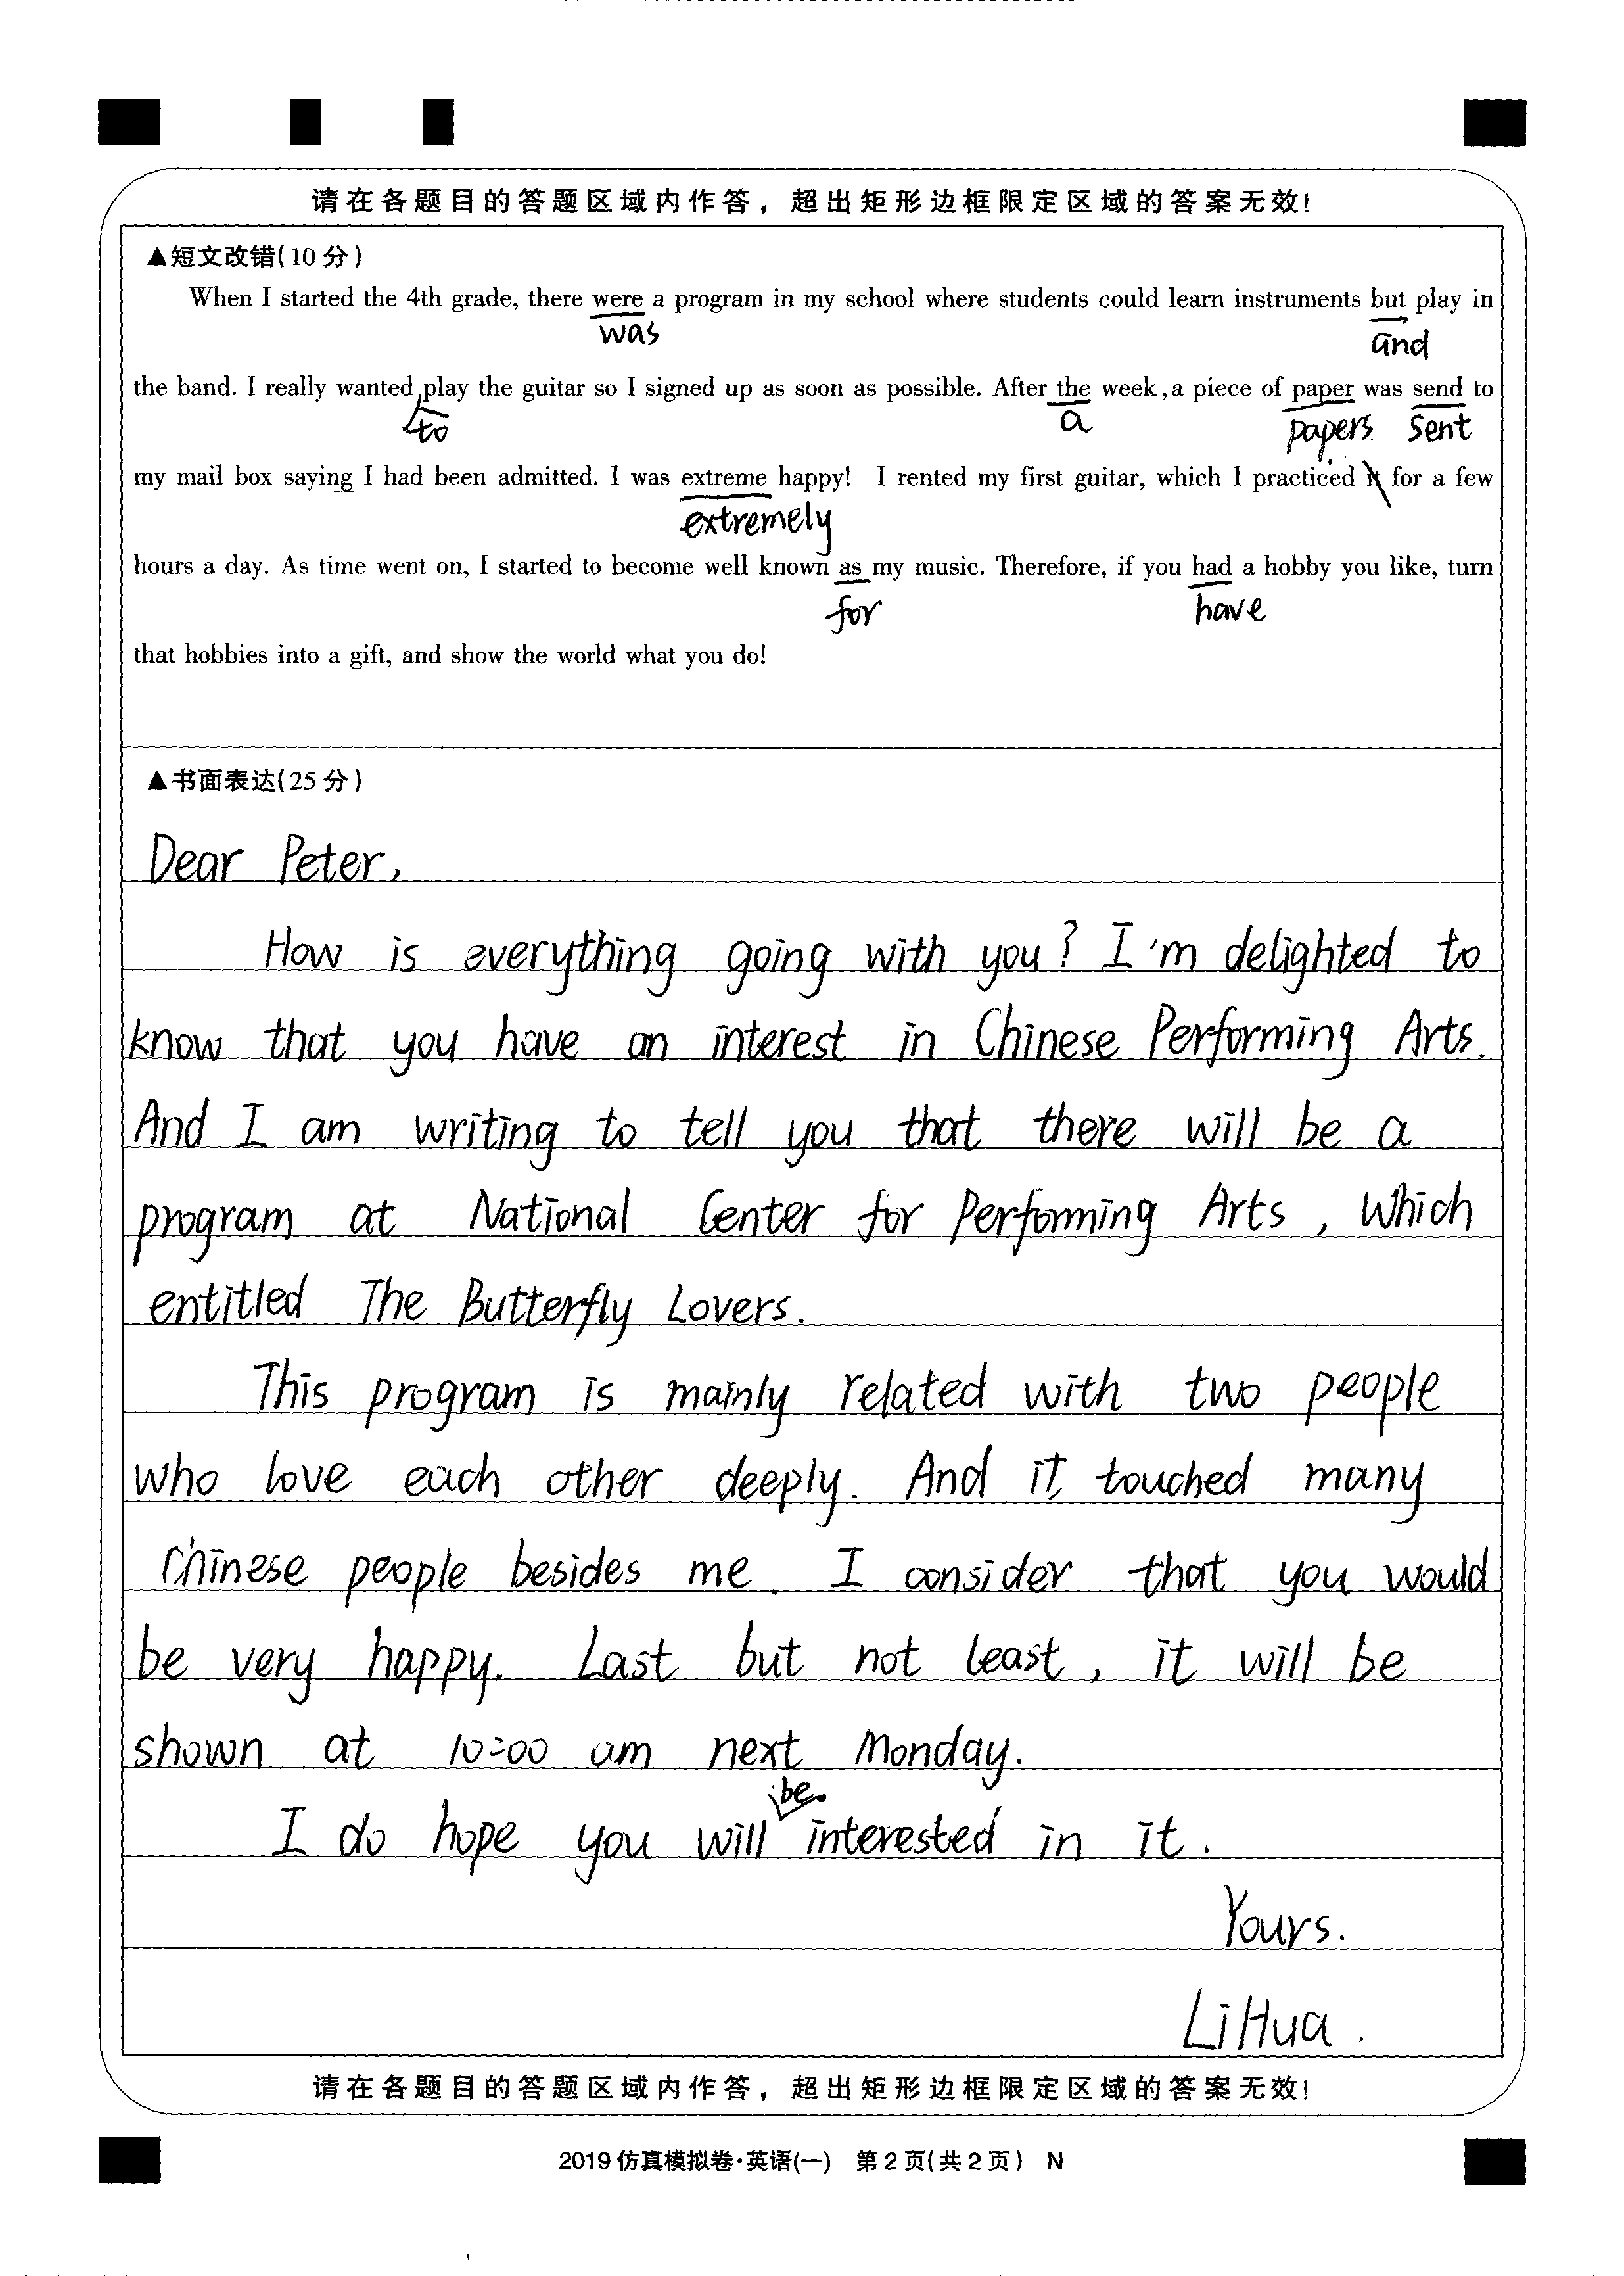 请在各题目的答题区域内作答，超出矩形边框限定区域的答案无效！
▲短文改错(10分)
When I started the 4th grade, there were a program in my school where students could learn instruments but play in
was
and
the band. I really wanted play the guitar so I signed up as soon as possible. After the week, a piece of paper was send to
to
a
papers
sent
my mail box saying I had been admitted. I was extreme happy! I rented my first guitar, which I practiced it for a few
extremely
hours a day. As time went on, I started to become well known as my music. Therefore, if you had a hobby you like, turn
for
have
that hobbies into a gift, and show the world what you do!
▲书面表达(25分)
Dear Peter,
How is everything going with you? I'm delighted to
know that you have an interest in Chinese Performing Arts.
And I am writing to tell you that there will be a
program at National Center for Performing Arts, which
entitled The Butterfly Lovers.
This program is mainly related with two people
who love each other deeply. And it touched many
Chinese people besides me. I consider that you would
be very happy. Last but not least, it will be
shown at 10:00 am next Monday.
be
I do hope you will interested in it.
Yours.
Li Hua.
请在各题目的答题区域内作答，超出矩形边框限定区域的答案无效！
2019仿真模拟卷·英语(一) 第2页(共2页) N